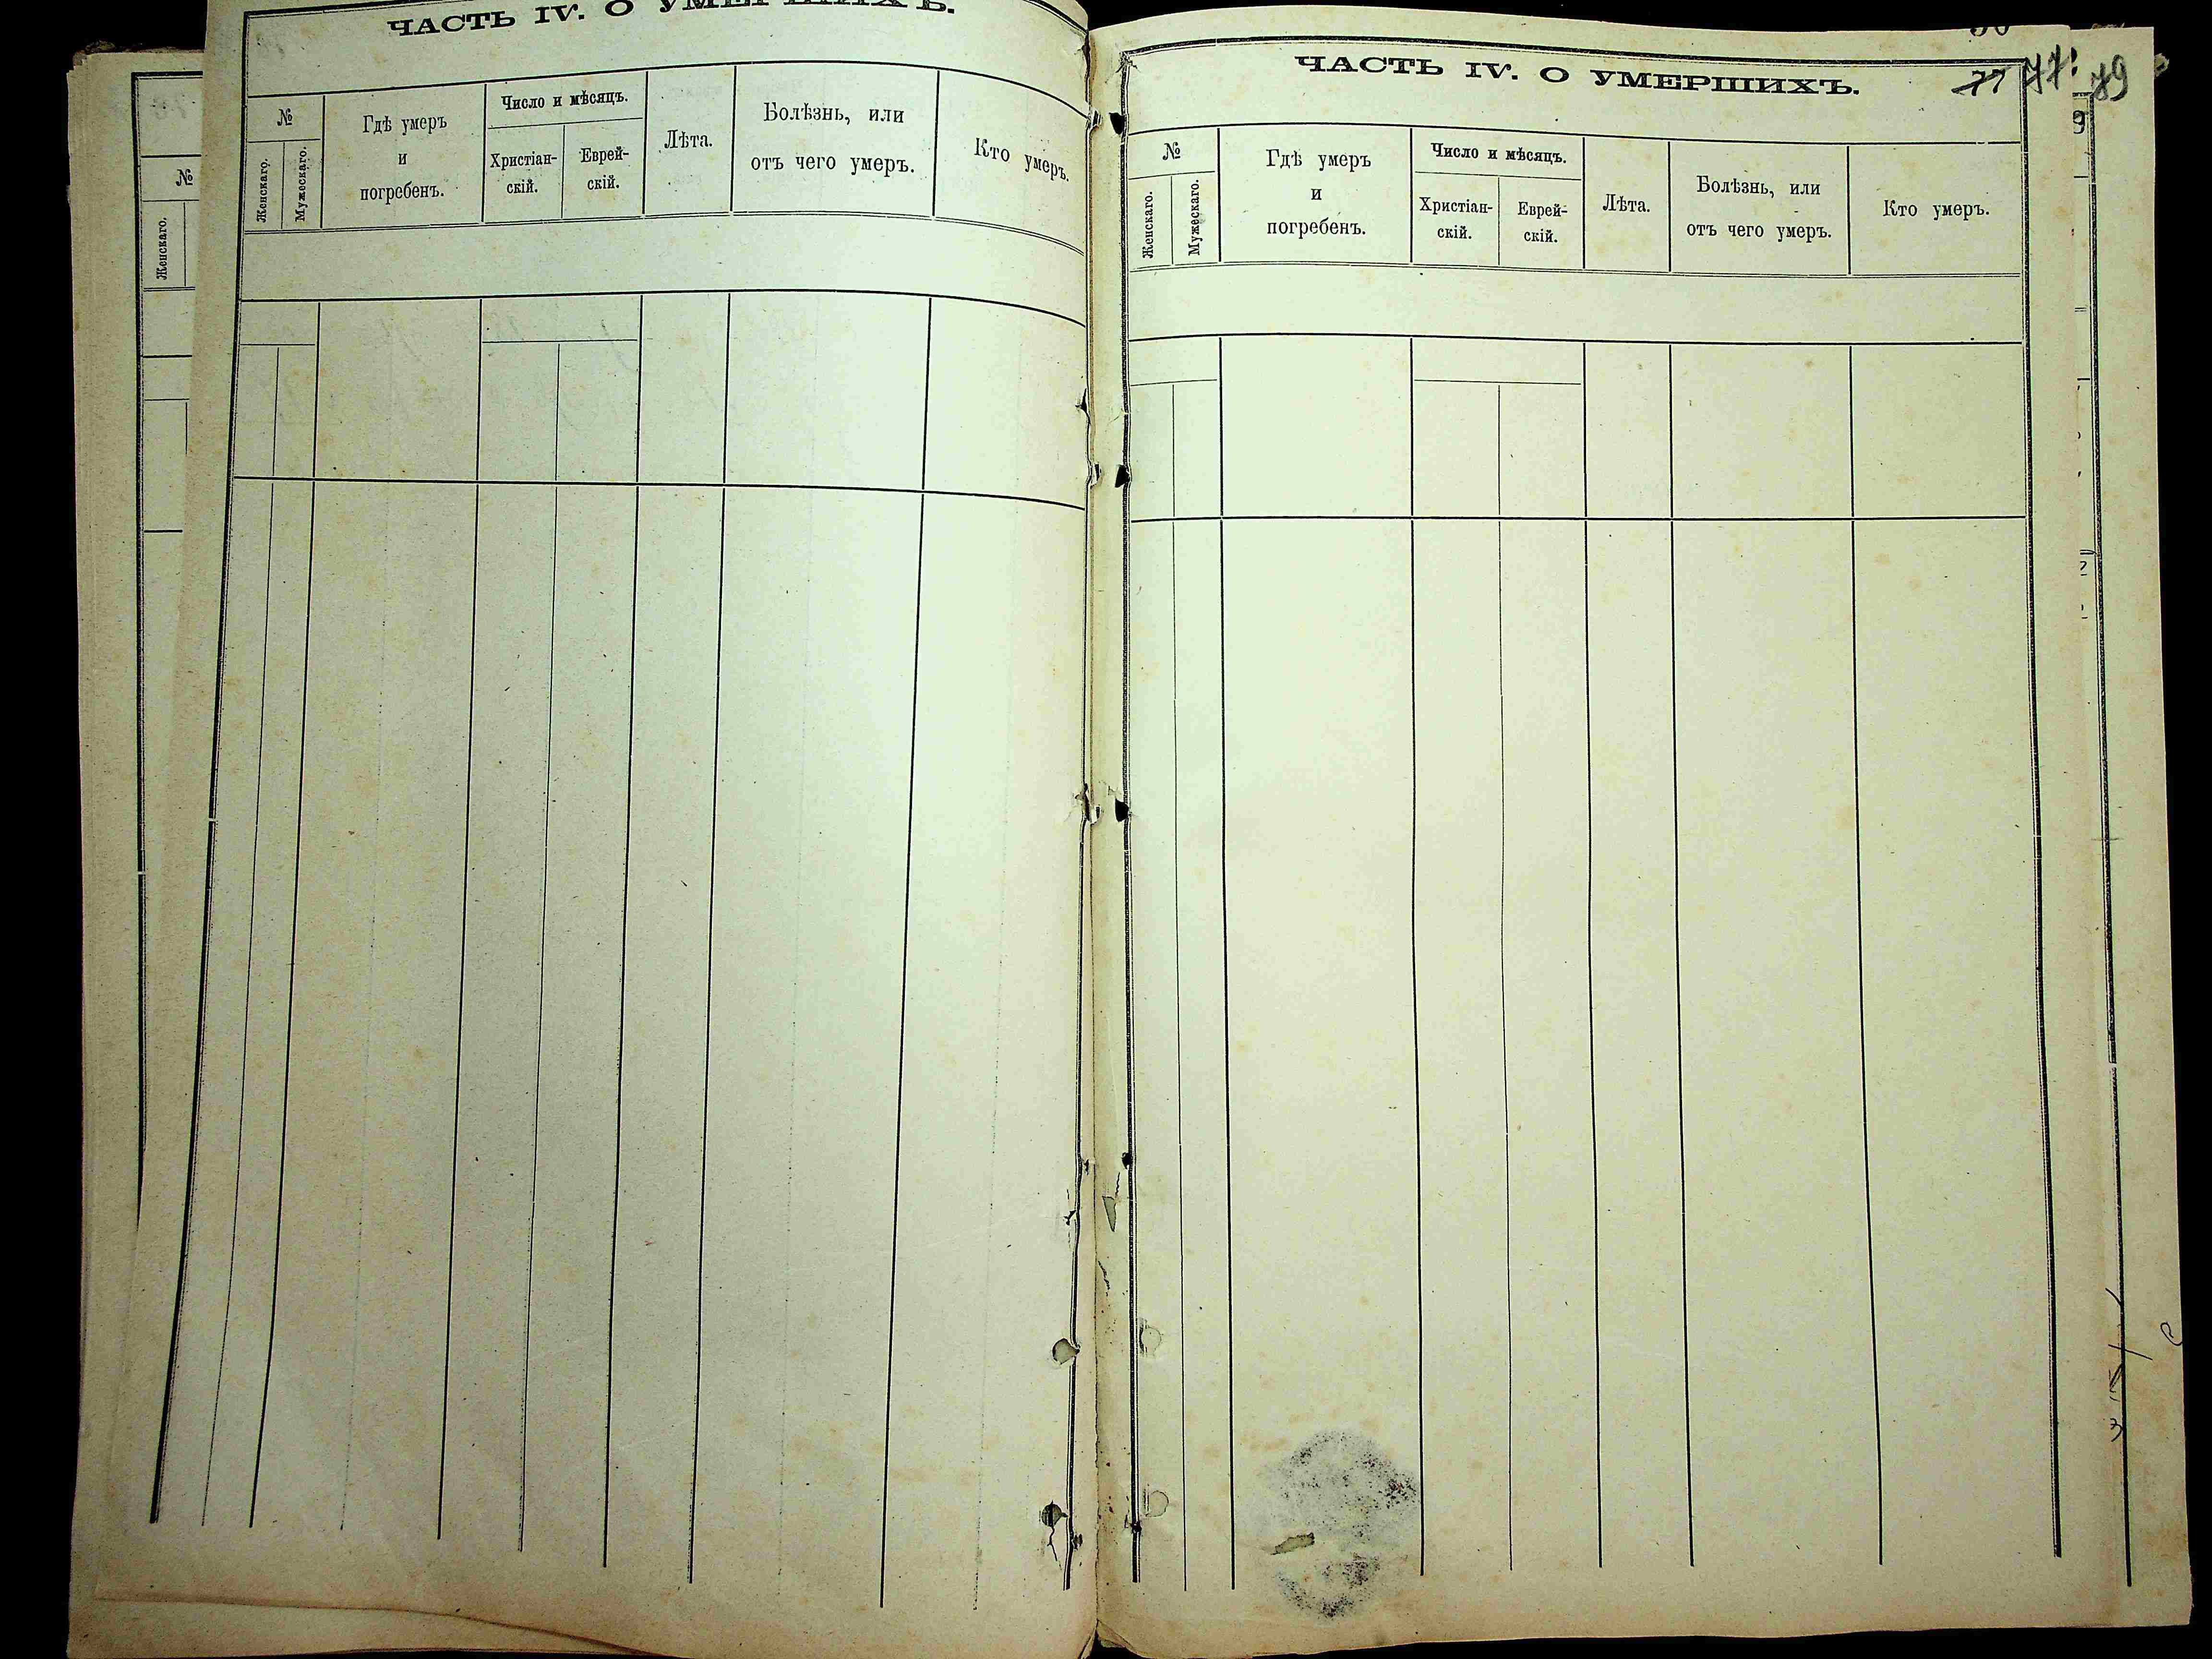 ЧАСТЬ IV. О УМЕРШИХЪ.
№
Женскаго.
Мужескаго.
Гдѣ умеръ
и
погребенъ.
Число и мѣсяцъ.
Христіан-
скій.
Еврей-
скій.
Лѣта.
Болѣзнь, или
отъ чего умеръ.
Кто умеръ.
№
Женскаго.
ЧАСТЬ IV. О УМЕРШИХЪ.
77 77 79
№
Женскаго.
Мужескаго.
Гдѣ умеръ
и
погребенъ.
Число и мѣсяцъ.
Христіан-
скій.
Еврей-
скій.
Лѣта.
Болѣзнь, или
отъ чего умеръ.
Кто умеръ.